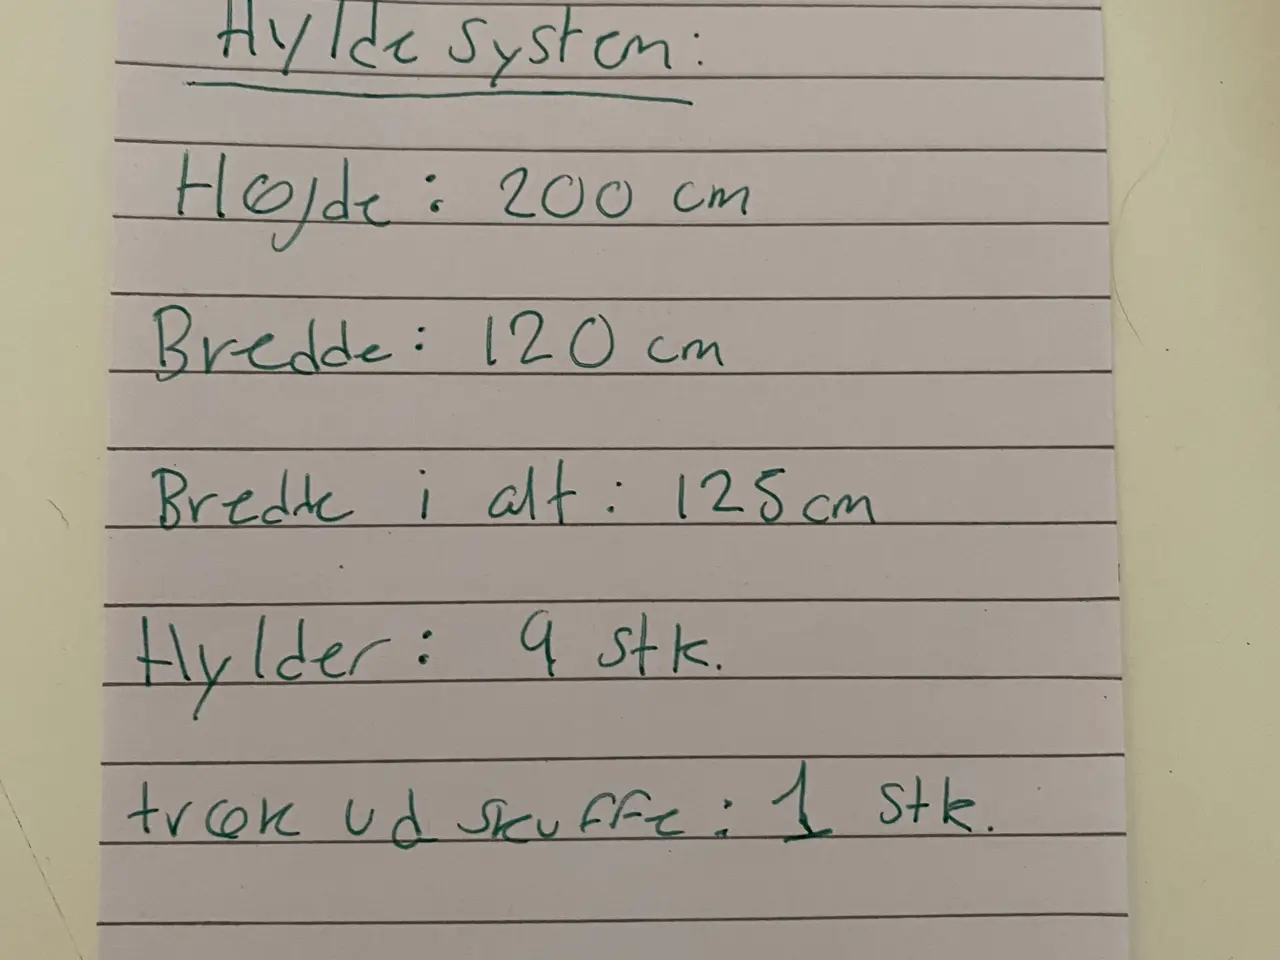 Hylde system:
Højde: 200 cm
Bredde: 120 cm
Bredde i alt: 125 cm
Hylder: 9 stk.
træk ud skuffe: 1 stk.